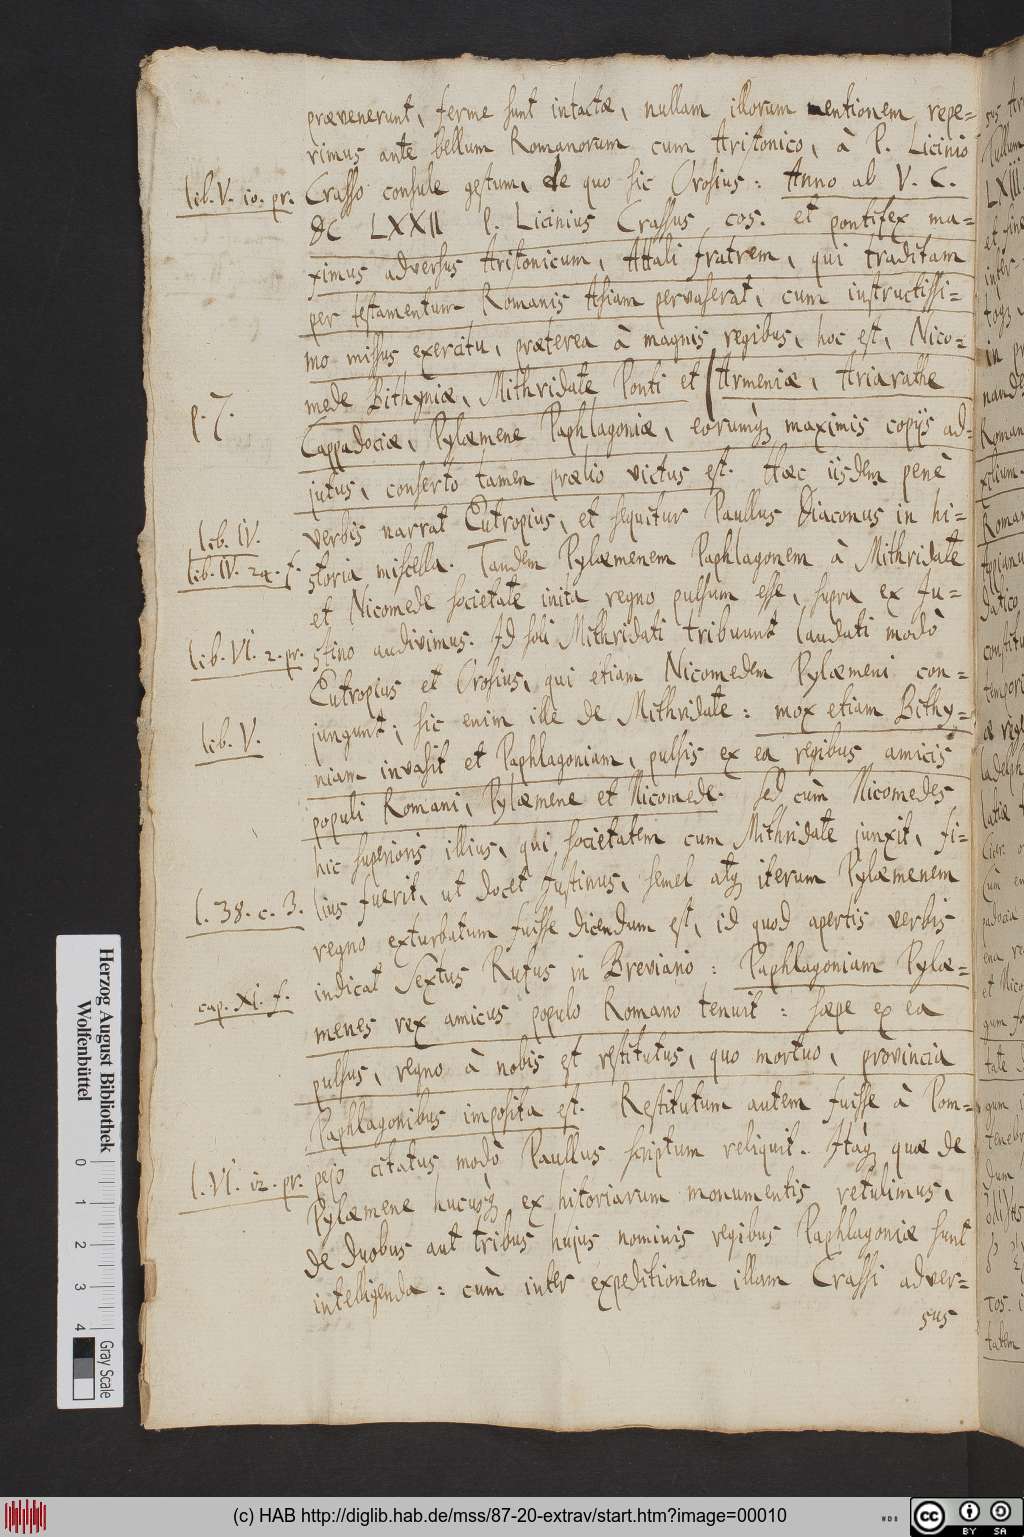 prævenerunt, ferme sunt intactæ, nullam illorum mentionem repe=
rimus ante bellum Romanorum cum Aristonico, à P. Licinio
lib. V. 10. pr.
Crasso consule gestum, de quo sic Orosius: Anno ab V. C.
DC LXXII P. Licinius Crassus cos. et pontifex ma=
ximus adversus Aristonicum, Attali fratrem, qui traditam
per testamentum Romanis Asiam pervaserat, cum instructissi=
mo missus exercitu, præterea à magnis regibus, hoc est, Nico=
mede Bithyniæ, Mithridate Ponti et Armeniæ, Ariarathe
p. 7.
Cappadociæ, Pylæmene Paphlagoniæ, eorumq; maximis copijs ad=
jutus, conserto tamen prælio victus est. Hæc iisdem penè
lib. IV.
verbis narrat Eutropius, et sequitur Paullus Diaconus in hi=
lib. IV. 29. f.
storia miscella. Tandem Pylæmenem Paphlagonem à Mithridate
et Nicomede societate inita regno pulsum esse, supra ex Ju=
lib. VI. 2. pr.
stino audivimus. Id soli Mithridati tribuunt laudati modò
Eutropius et Orosius, qui etiam Nicomedem Pylæmeni con=
lib. V.
jungunt; sic enim ille de Mithridate: mox etiam Bithy=
niam invasit et Paphlagoniam, pulsis ex ea regibus amicis
populi Romani, Pylæmene et Nicomede. Sed cùm Nicomedes
hic superioris illius, qui societatem cum Mithridate junxit, fi=
l. 38. c. 3.
lius fuerit, ut docet Justinus, semel atq; iterum Pylæmenem
regno exturbatum fuisse dicendum est, id quod apertis verbis
indicat Sextus Rufus in Breviario: Paphlagoniam Pylæ=
cap. XI. f.
menes rex amicus populo Romano tenuit: sæpe ex ea
pulsus, regno à nobis est restitutus, quo mortuo, provincia
Paphlagonibus imposita est. Restitutum autem fuisse à Pom=
l. VI. 12. pr.
pejo citatus modò Paullus scriptum reliquit. Itaq; quæ de
Pylæmene hucusq; ex historiarum monumentis retulimus,
de duobus aut tribus hujus nominis regibus Paphlagoniæ sunt
intelligenda: cùm inter expeditionem illam Crassi adver=
sus
Herzog August Bibliothek
Wolfenbüttel
0 1 2 3 4
Gray Scale
(c) HAB http://diglib.hab.de/mss/87-20-extrav/start.htm?image=00010
cc BY SA